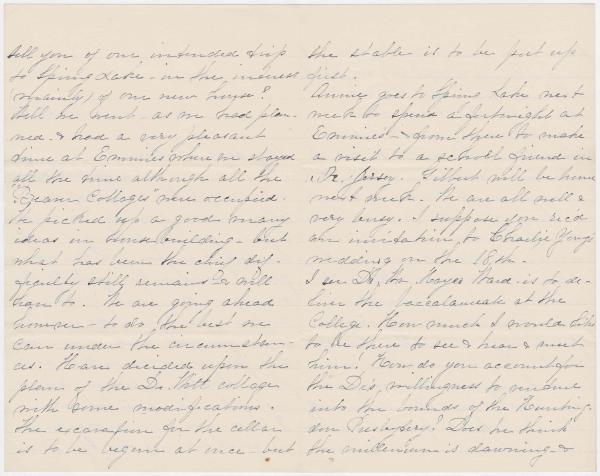 tell you of our intended trip
to Spring Lake - in the interest
(mainly) of our new house?
Well we went - as we had plan-
ned - & had a very pleasant
time at Emmies where we stayed
all the time although all the
"Dean Cottages" were occupied.
We picked up a good many
ideas in house building - but
what has been the chief dif-
ficulty still remains & will
to. We are going ahead
however - to do the best we
can under the circumstan-
ces. Have decided upon the
plan of the De Witt cottage
with some modifications.
The excavation for the cellar
is to be begun at once - but
the stable is to be put up
first.
Annie goes to Spring Lake next
week to spend a fortnight at
Emmies - & from there to make
a visit to a school friend in
N. Jersey. Gilbert will be home
next week. We are all well &
very busy. I suppose you recd
an invitation to Charlie Yong's
wedding on the 18th.
I see Dr. Hayes Ward is to de-
liver the baccalaureate at the
College. How much I would like
to be there to see & hear & meet
him! How do you account for
the Dr's willingness to venture
into the bounds of the Hunting-
don Presbytery? Does he think
the millenium is dawning - &